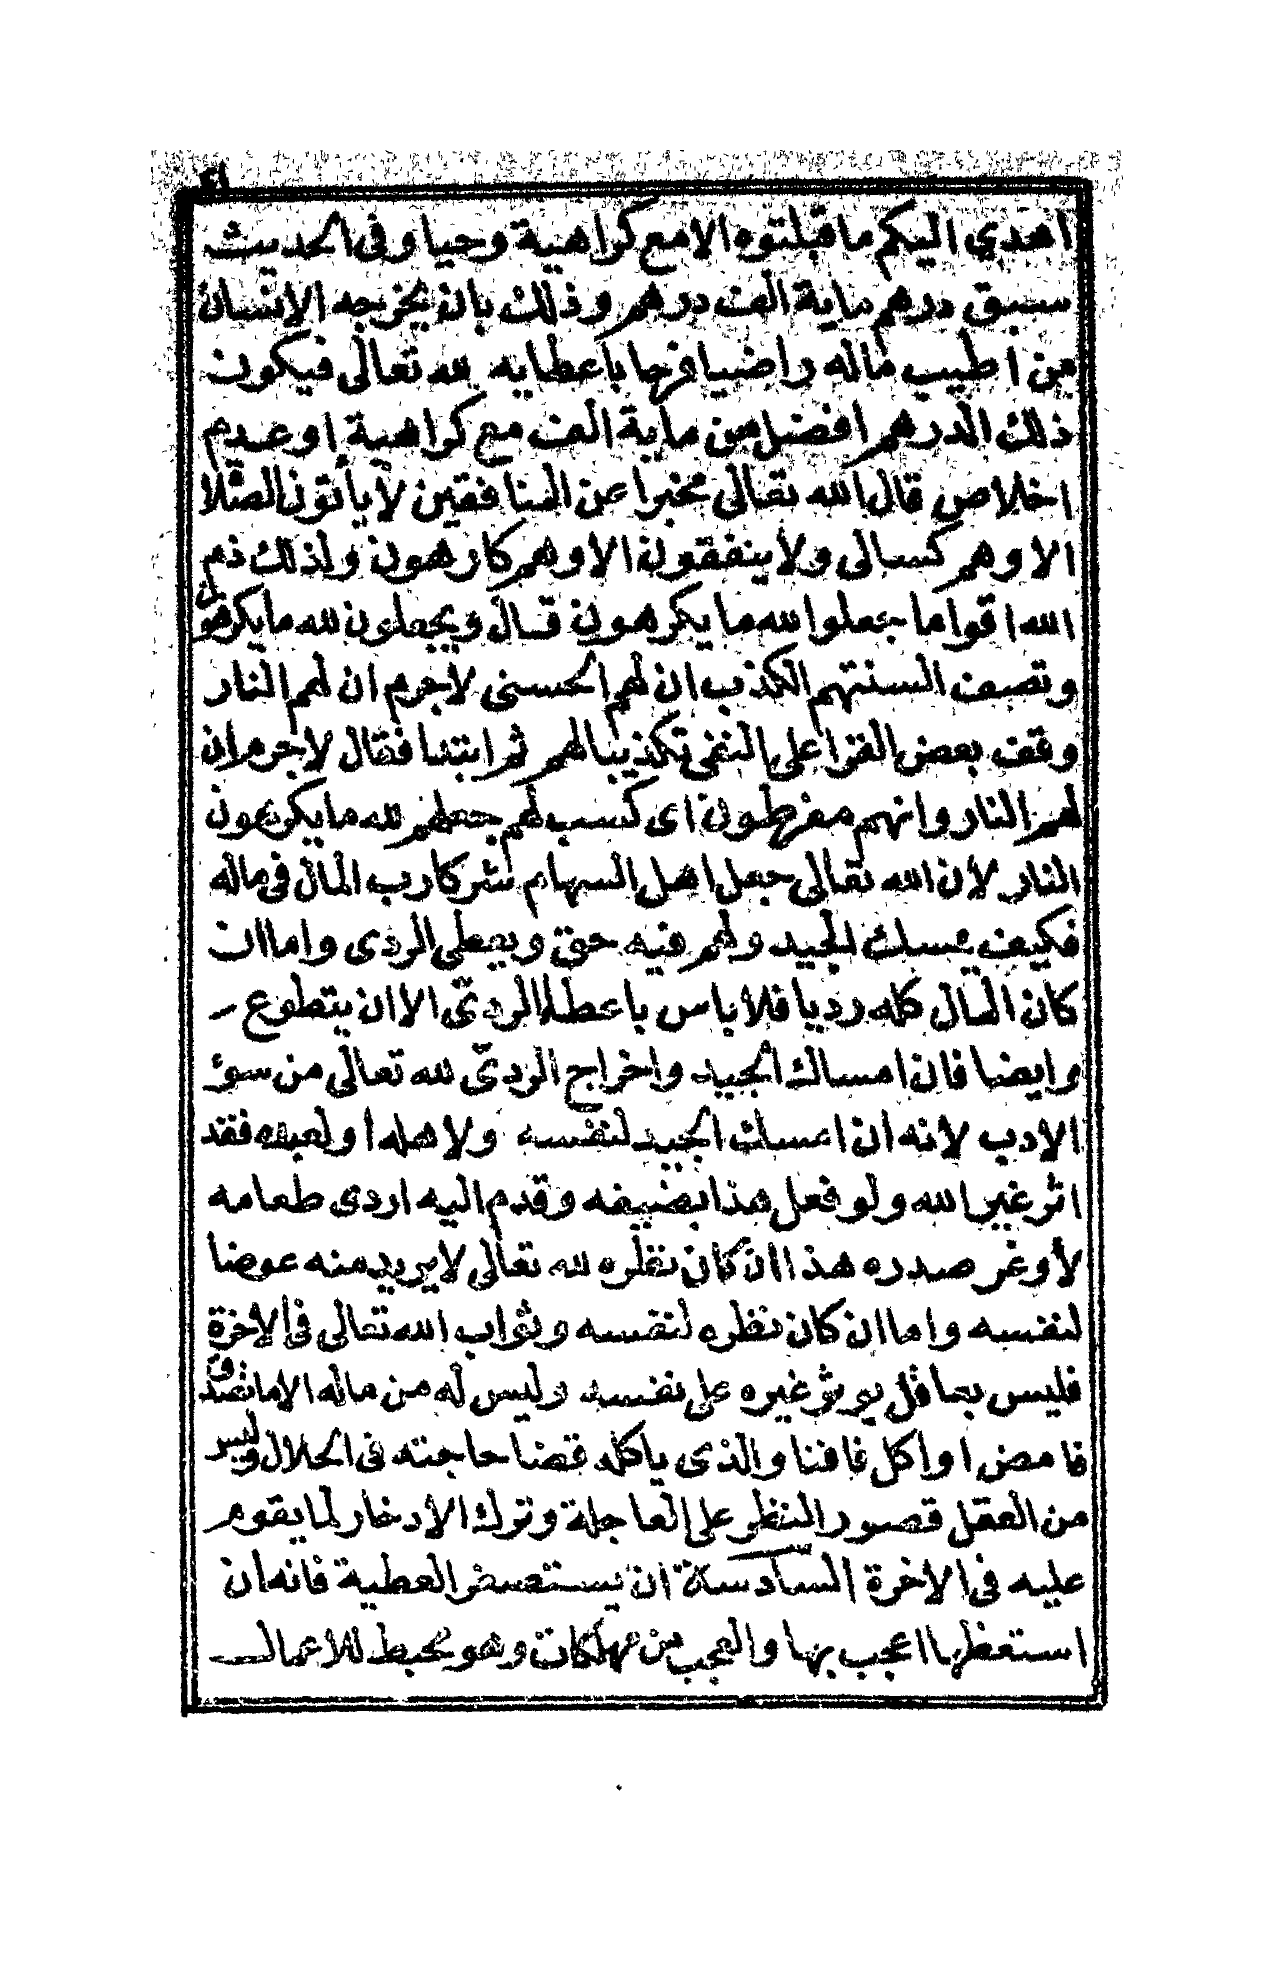 اهدي اليكم ما قبلتوه الا مع كراهية وحيا وفى الحديث
سبق درهم ماية الف درهم وذلك بان يخرجه الانسان
من اطيب ماله راضيا فرحا باعطايه لله تعالى فيكون
ذلك الدرهم افضل من ماية الف مع كراهية او عدم
اخلاص قال الله تعالى مخبرا عن المنافقين لا يأتون الصلا
الا وهم كسالى ولا ينفقون الا وهم كارهون ولذلك ذم
الله اقواما جعلوا لله ما يكرهون قال ويجعلون لله ما يكرهون
وتصف السنتهم الكذب ان لهم الحسنى لا جرم ان لهم النار
وقف بعض القرا على النفى تكذيبا لهم ثم ابتدا فقال لا جرم ان
لهم النار وانهم مفرطون اى كسب لهم جعلهم لله ما يكرهون
النار لان الله تعالى جعل اهل السهام شركا رب المال فى ماله
فكيف يمسك الجيد ولهم فيه حق ويعطى الردى واما ان
كان المال كله رديا فلا باس باعطا الردىّ الا ان يتطوع
وايضا فان امساك الجيد واخراج الردىّ لله تعالى من سوء
الادب لانه ان امسك الجيد لنفسه ولاهله أو لعبده فقد
اثر غير الله ولو فعل هذا بضيفه وقدم اليه اردى طعامه
لأوغر صدره هذا ان كان نظره لله تعالى لا يريد منه عوضا
لنفسه واما ان كان نظره لنفسه وثواب الله تعالى فى الاخرة
فليس بعاقل يوثر غيره على نفسه وليس له من ماله الا ما تصدق
فامضى او اكل فافنا والذى ياكله قضا حاجته فى الحلال وليس
من العقل قصور النظر على العاجلة وترك الادخار لما يقوم
عليه فى الاخرة السادسة ان يستصغر العطية فانه ان
استعظمها اعجب بها والعجب من مهلكات وهو محبط للاعمال